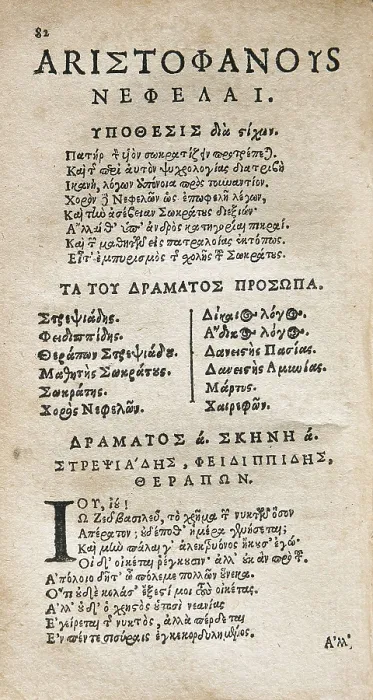 82
ΑΡΙΣΤΟΦΑΝΟΥΣ
ΝΕΦΕΛΑΙ.
ΥΠΟΘΕΣΙΣ διὰ στίχων.
Πατὴρ τὸν υἱὸν σωκρατίζειν προτρέπει.
Καὶ τῆς περὶ αὐτὸν ψυχρολογίας διατριβὴ
Ἱκανὴ, λόγων ἀπόνοια πρὸς τοὐναντίον.
Χορὸς δὲ Νεφελῶν ὡς ἐπωφελῆ λέγων,
Καὶ τὴν ἀσέβειαν Σωκράτους διεξιών·
Ἄλλαι θ' ὑπ' ἀνδρὸς κατηγορίαι πικραί.
Καὶ τῶν μαθητῶν εἷς πατραλοίας ἐκτόπως.
Εἶτ' ἐμπυρισμὸς τῆς σχολῆς τοῦ Σωκράτους.
ΤΑ ΤΟΥ ΔΡΑΜΑΤΟΣ ΠΡΟΣΩΠΑ.
Στρεψιάδης.
Φειδιππίδης.
Θεράπων Στρεψιάδου.
Μαθητὴς Σωκράτους.
Σωκράτης.
Χορὸς Νεφελῶν.
Δίκαιος λόγος.
Ἄδικος λόγος.
Δανειστὴς Πασίας.
Δανειστὴς Αμυνίας.
Μάρτυς.
Χαιρεφῶν.
ΔΡΑΜΑΤΟΣ ά. ΣΚΗΝΗ ά.
ΣΤΡΕΨΙΑΔΗΣ, ΦΕΙΔΙΠΠΙΔΗΣ,
ΘΕΡΑΠΩΝ.
ΙΟΥ, ἰού!
Ὦ Ζεῦ βασιλεῦ, τὸ χρῆμα τῶν νυκτῶν ὅσον
Ἀπέρατον· οὐδέποθ' ἡμέρα γενήσεται;
Καὶ μὴν πάλαι γ' ἀλεκτρυόνος ἤκουσ' ἐγώ·
Οἱ δ' οἰκέται ῥέγκουσιν· ἀλλ' οὐκ ἂν πρὸ τοῦ.
Ἀπόλοιο δῆτ' ὦ πόλεμε πολλῶν οὕνεκα.
Ὅτ' οὐδὲ κολάσ' ἔξεστί μοι τοὺς οἰκέτας.
Ἀλλ' οὐδ' ὁ χρηστὸς οὑτοσὶ νεανίας
Ἐγείρεται τῆς νυκτὸς, ἀλλὰ πέρδεται
Ἐν πέντε σισύραις ἐγκεκορδυλημένος.
Ἀλλ'